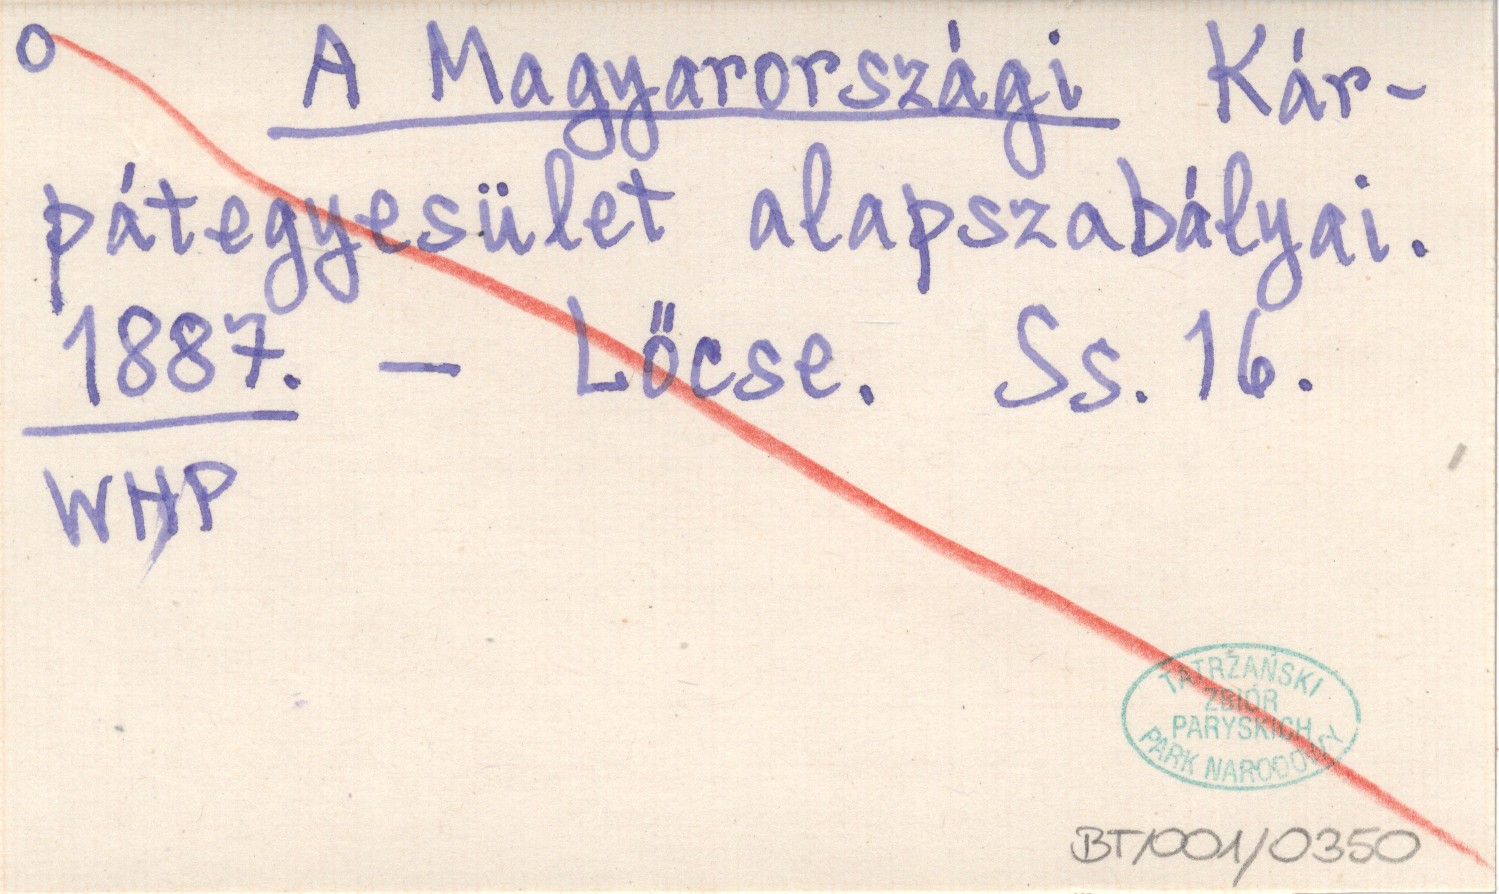 O A Magyarországi Kár-
pátegyesület alapszabályai.
1887. — Lőcse. Ss. 16.
WHP
TATRZAŃSKI
ZBIÓR
PARYSKICH
PARK NARODOWY
BT/001/0350